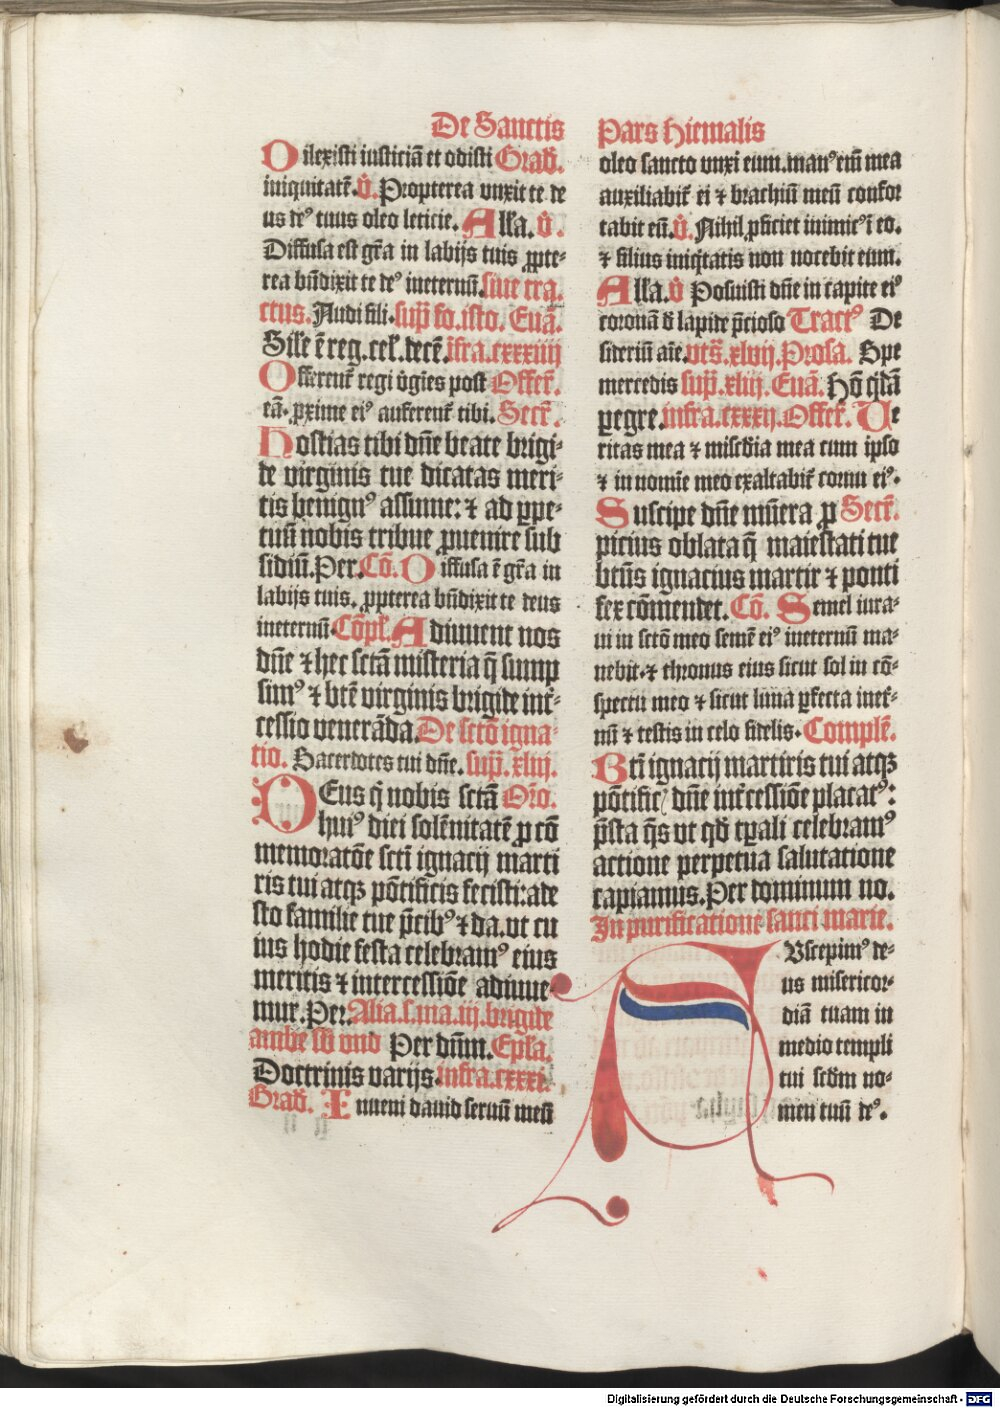 De Sanctis
Dilexisti iusticiã et odisti Grad̃.
iniquitatẽ. v̊. Propterea vnxit te de
us deꝰ tuus oleo leticie. Alla. v̊.
Diffusa est gr̃a in labijs tuis ꝓpte-
rea bñdixit te deꝰ ineternũ. siue tra-
ctus. Audi fili. sup̃ fo. isto. Euã.
Sil'e ẽ reg. cel'. decẽ. ĩfra. cxxxiiij
Offerent̃ regi v̊gĩes post Offer̃.
eã. ꝓxime eiꝰ auferent̃ tibi. Secr̃.
Hostias tibi dñe beate brigi-
de virginis tue dicatas meri-
tis benignꝰ assume: ⁊ ad ꝑpe-
tuũ nobis tribue ꝓuenire sub
sidiũ. Per. Cõ. Diffusa ẽ gr̃a in
labijs tuis. ꝓpterea bñdixit te deus
ineternũ. Cõpl'. Adiuuent nos
dñe ⁊ hec sctã misteria q̃ sump
simꝰ ⁊ btẽ virginis brigide int̃-
cessio venerãda. De sctõ igna-
tio. Sacerdotes tui dñe. sup̃. xliij.
DEus q̃ nobis sctã Or̃o.
huiꝰ diei solẽnitatẽ ꝓ cõ
memoratõe scti ignacij marti
ris tui atqꝫ põtificis fecisti: ade
sto familie tue p̃cibꝰ ⁊ da. vt cu
ius hodie festa celebramꝰ eius
meritis ⁊ intercessiõe adiuue-
mur. Per. Alia. s. ma. iij. brigide
ambe sb̃ vno Per dñm. Epl'a.
Doctrinis varijs. infra. cxxxi.
Grad̃. Inueni dauid seruũ meũ
Pars hiemalis
oleo sancto vnxi eum. manꝰ eĩ mea
auxiliabit̃ ei ⁊ brachiũ meũ confor
tabit eũ. v̊. Nihil ꝓficiet inimicꝰ ĩ eo.
⁊ filius iniq̃tatis non nocebit eum.
Alla. v̊ Posuisti dñe in capite eiꝰ
coronã d̃ lapide p̃cioso Tractꝰ De
sideriũ aĩe. vts̃. xlvij. Prosa. Spe
mercedis sup̃. xliij. Euã. Hõ q̃dã
pegre. infra. cxxxij. Offer̃. Ve
ritas mea ⁊ misc̃dia mea cum ipso
⁊ in nomĩe meo exaltabit̃ cornu eiꝰ.
Suscipe dñe mũera ꝓ Secr̃.
picius oblata q̃ maiestati tue
btũs ignacius martir ⁊ ponti
fex cõmendet. Cõ. Semel iura-
ui in sctõ meo semẽ eiꝰ ineternũ ma-
nebit. ⁊ thronus eius sicut sol in cõ-
spectu meo ⁊ sicut luna ꝑfecta inet̃-
nũ ⁊ testis in celo fidelis. Complẽ.
Btĩ ignacij martiris tui atqꝫ
põtificꝭ dñe int̃cessiõe placatꝰ:
p̃sta q̃s vt qd̃ tꝑali celebramꝰ
actione perpetua saluatione
capiamus. Per dominum no.
In purificatione sancti marie.
Uscepimꝰ de-
us misericor-
diã tuam in
medio templi
tui scd̃m no-
men tuũ deꝰ.
Digitalisierung gefördert durch die Deutsche Forschungsgemeinschaft - DFG